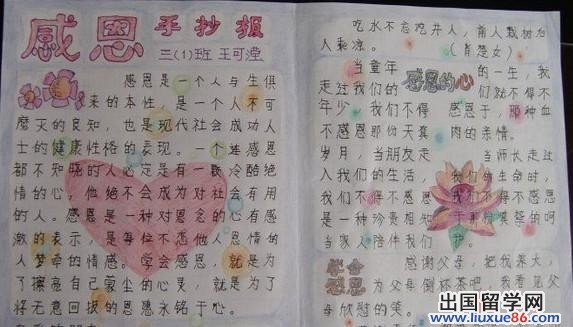 感恩
手抄报
三(1)班 王可滢
感恩是一个人与生俱
来的本性,是一个人不可
磨灭的良知,也是现代社会成功人
士的健康性格的表现。一个连感恩
都不知晓的人必定是有一颗冷酷绝
情的心,他绝不会成为对社会有用
的人。感恩是一种对恩念的心有感
激的表示,是每位不忘他人恩情的
人萦牵的情感。学会感恩,就是为
了擦亮自己蒙尘的心灵,就是为了
将无意回报的恩惠永铭于心。
吃水不忘挖井人,前人栽树后
人乘凉。(肖楚女)
感恩的心
当童年的一生,我
走过我们的们就不得不
年少我们不得感恩于,那种血
不感恩那份天真肉的亲情。
岁月,当朋友走当师长走过
入我们的生活,我们的生命时,
我们不得不感恩我们不得不感恩
是一种珍贵相知于那份真挚的呵
当家人陪伴我们护。
学会
感恩
感谢父母,把我养大,
为父母倒杯茶吧,我看见父
母欣慰的笑。
出国留学网
www.liuxue86.com